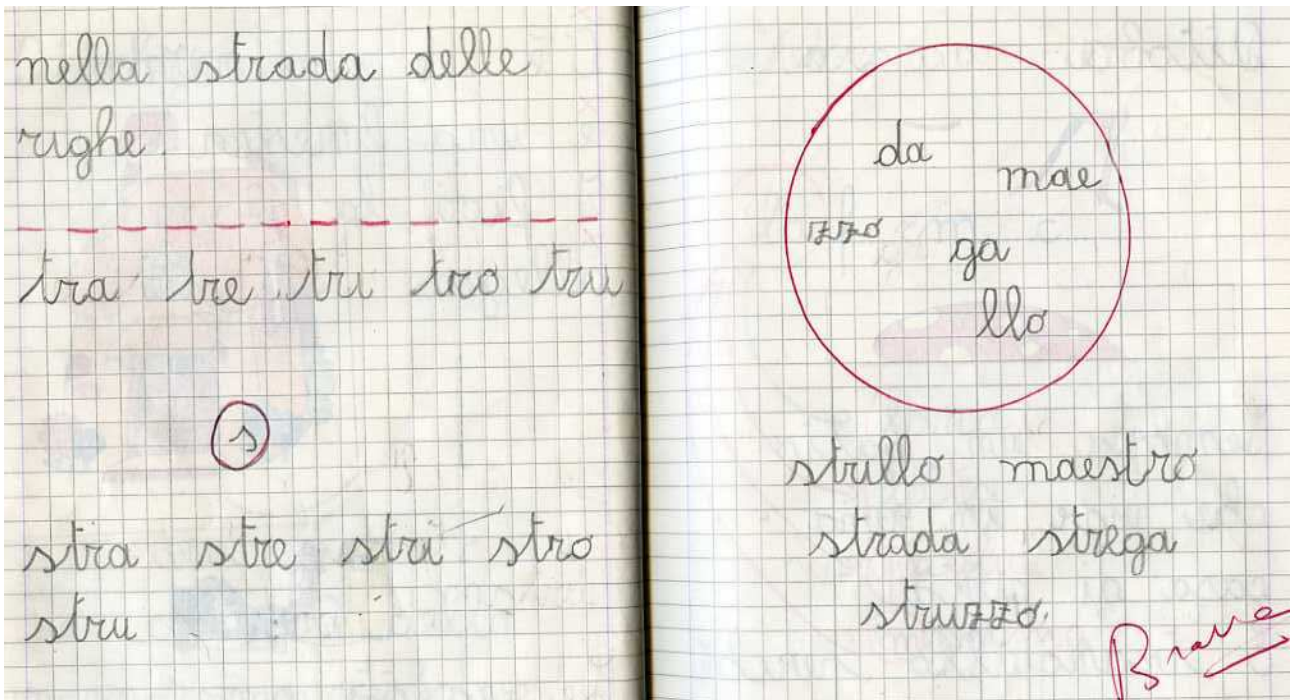 nella strada delle
righe.
tra tre tri tro tru
s
stra stre stri stro
stru
da
mae
zzo
ga
llo
strillo maestro
strada strega
struzzo.